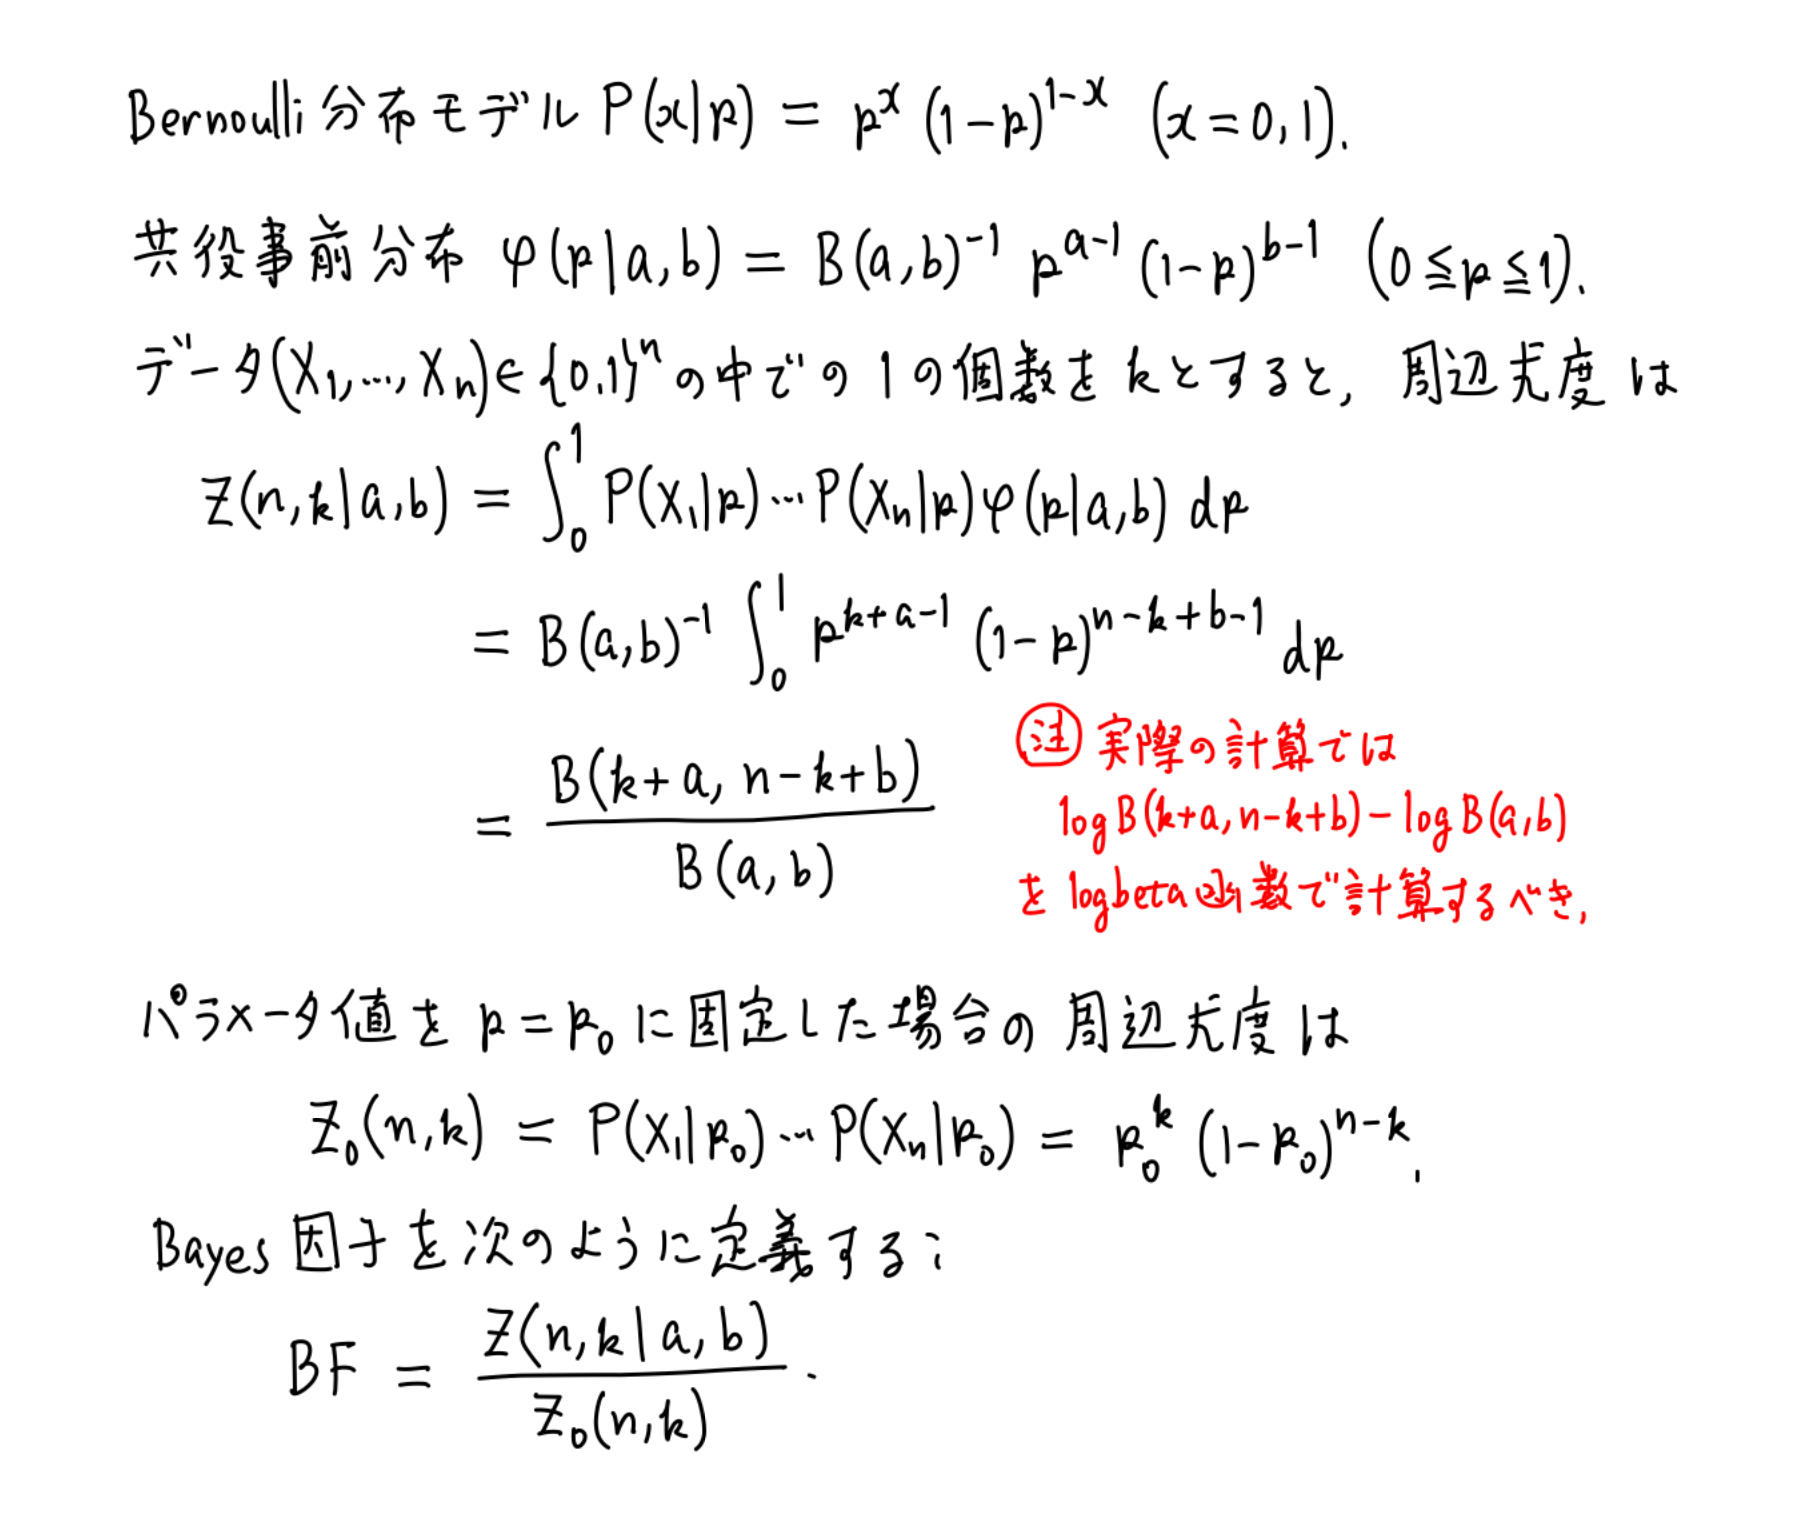 Bernoulli分布モデル P(x|p) = p^x (1-p)^{1-x} (x=0,1).
共役事前分布 φ(p|a,b) = B(a,b)^{-1} p^{a-1} (1-p)^{b-1} (0≦p≦1).
データ(X_1,…,X_n)∈{0,1}^n の中での1の個数をkとすると, 周辺尤度は
Z(n,k|a,b) = ∫_0^1 P(X_1|p)…P(X_n|p)φ(p|a,b) dp
= B(a,b)^{-1} ∫_0^1 p^{k+a-1} (1-p)^{n-k+b-1} dp
= B(k+a, n-k+b) / B(a,b)
注 実際の計算では
log B(k+a, n-k+b) - log B(a,b)
を logbeta函数で計算するべき.
パラメータ値を p = p_0 に固定した場合の周辺尤度は
Z_0(n,k) = P(X_1|p_0)…P(X_n|p_0) = p_0^k (1-p_0)^{n-k}.
Bayes因子を次のように定義する:
BF = Z(n,k|a,b) / Z_0(n,k) .